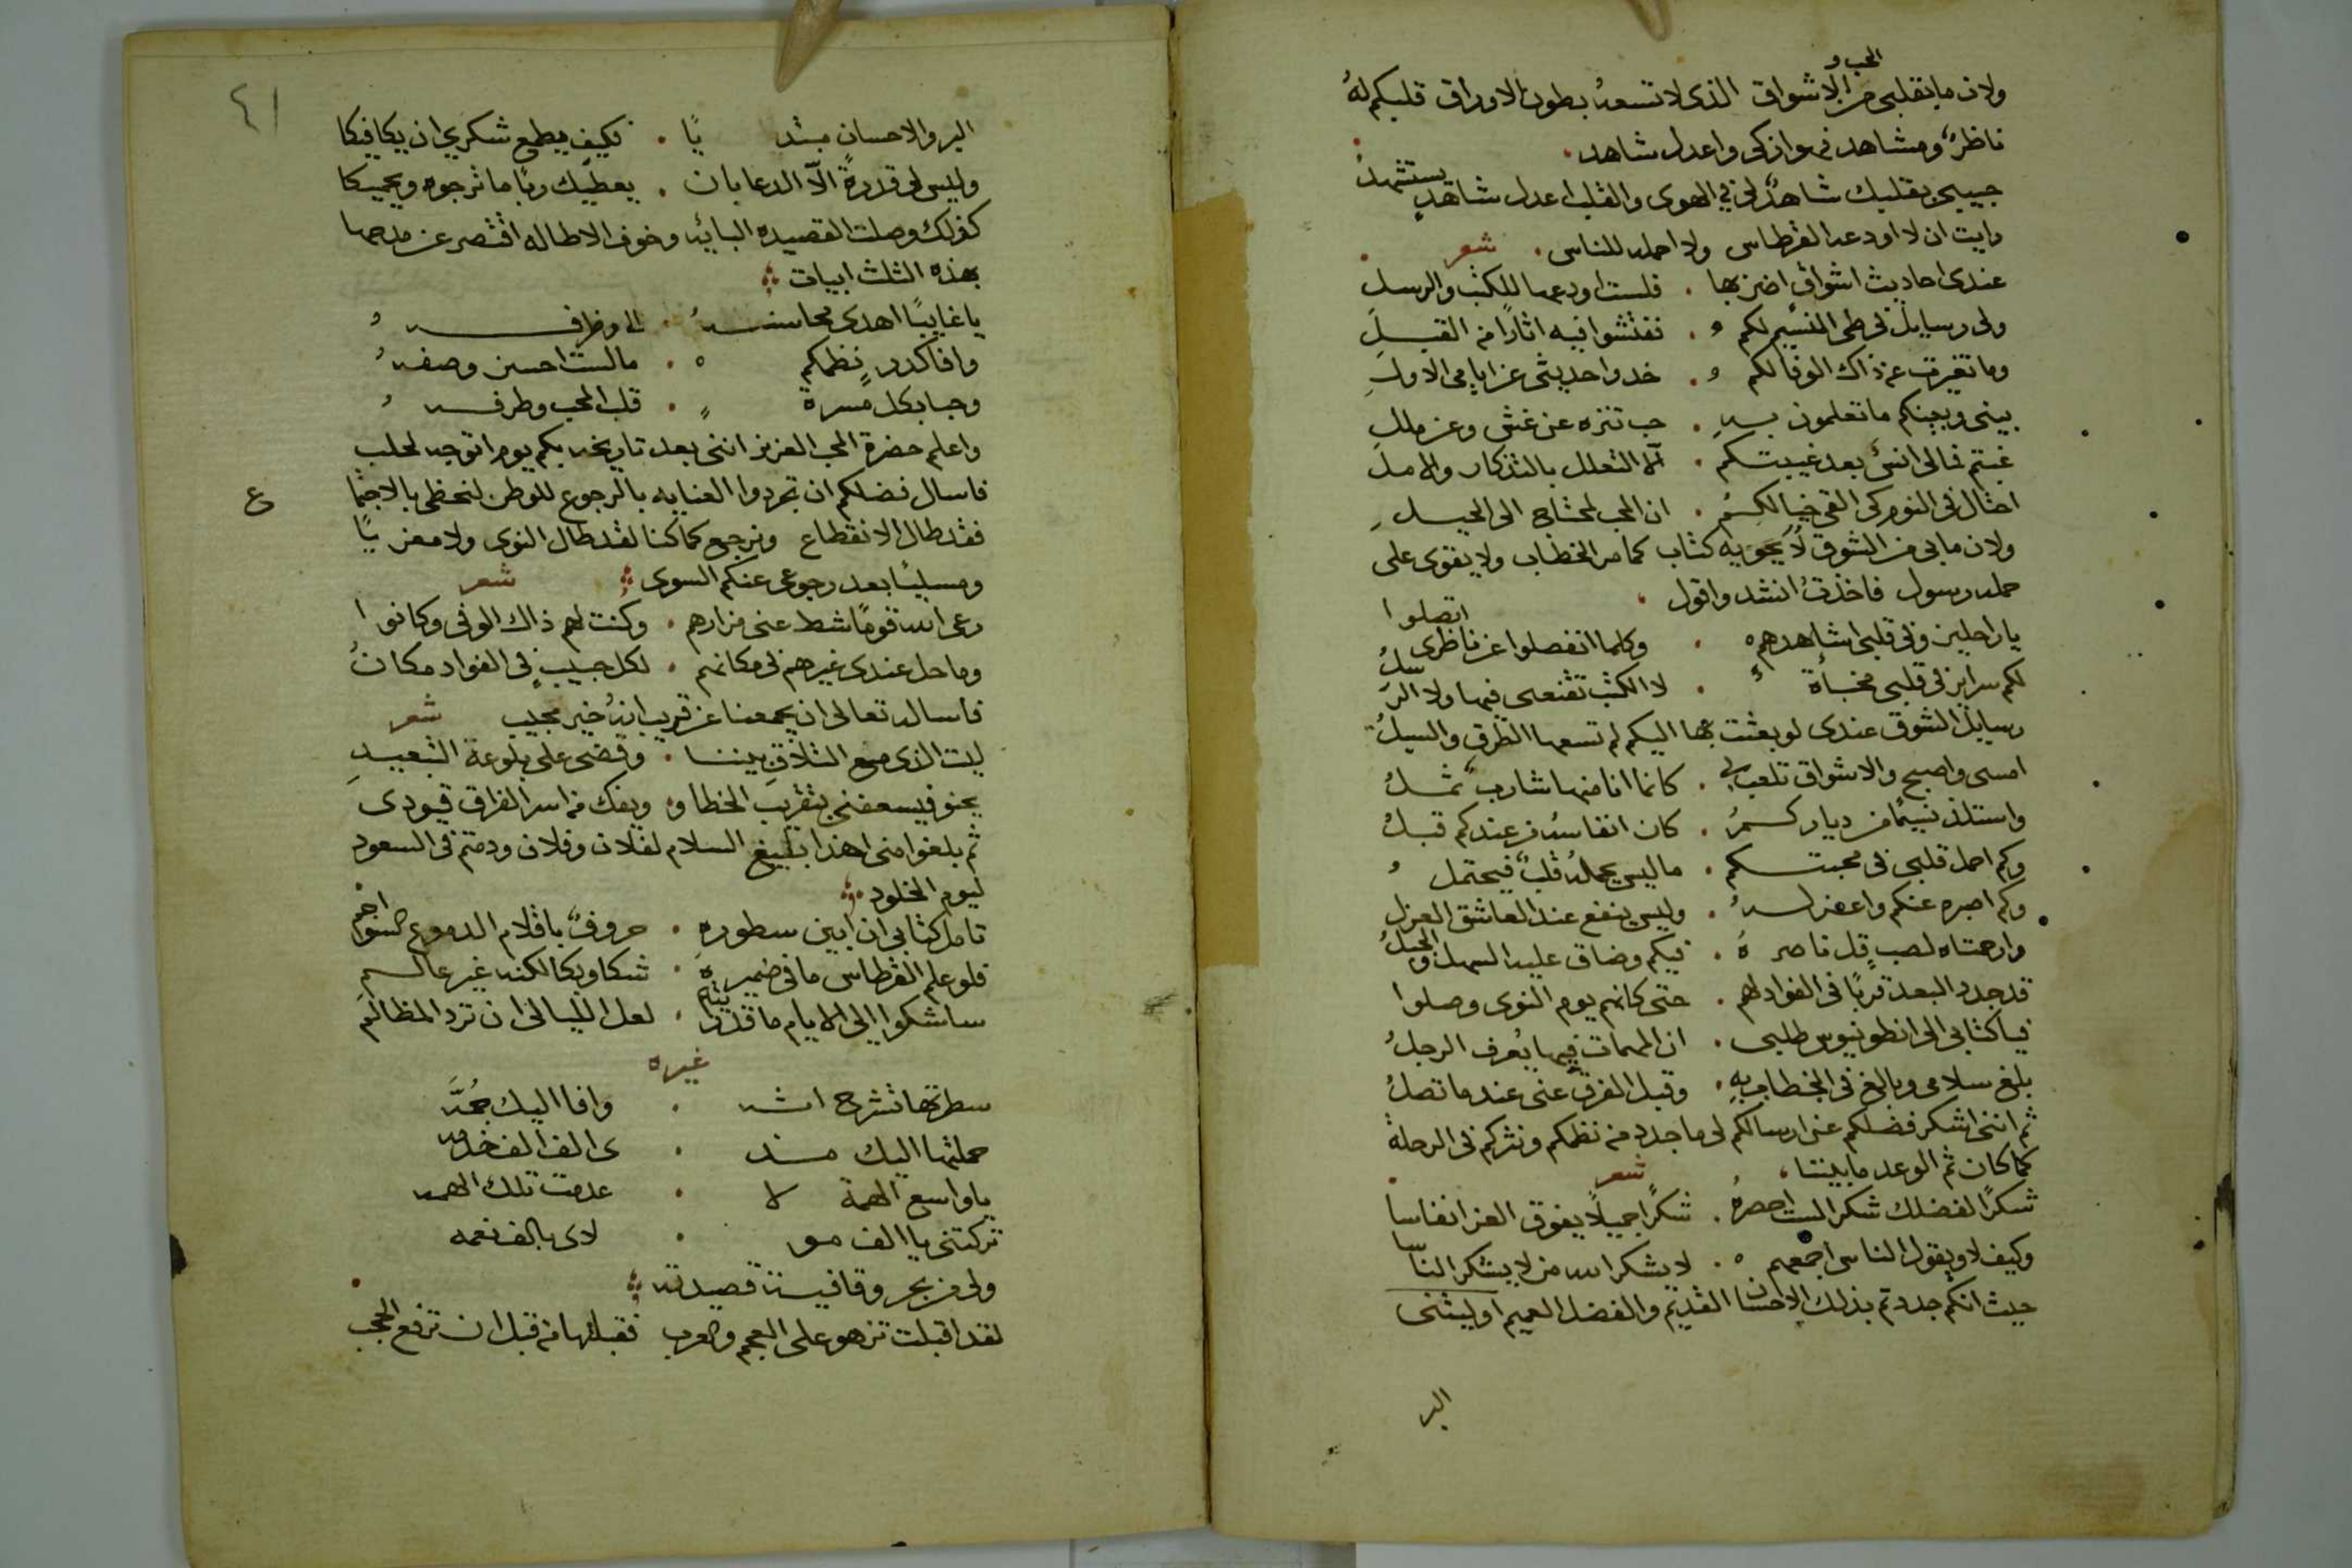 ولان ما بقلبى من الحب و الاشواق الذى لا تسعهُ بطون الاوراق قلبكم لهُ
ناظرٌ ومشاهد فهو ازكى واعدل شاهد
حبيبى بقلبك شاهدٌ لى فى الهوى والقلب اعدل شاهدٍ يستشهدُ
رايت ان لا اودعه القرطاس ولا احمله للناس . شعر
عندى احاديث اشواقٍ اضن بها . فلست اودعها للكتب والرسل
ولى رسايلٌ فى طى النسيم لكم و . ففتشوا فيه اثارًا من القبلِ
وما تغيرت عن ذاك الوفا لكم و . خدوا حديثى عن ايامى الاولِ
بينى وبينكم ما تعلمون بهِ . حب تنزه عن غش وعن مللِ
غبتم فمالى انسٌ بعد غيبتكم . الّا التعلل بالتذكار والاملِ
احتال فى النوم كى القى خيالكمُ . ان المحب لمحتاج الى الحيلِ
ولان ما بى من الشوق لا يحويه كتاب كما مر الخطاب ولا يقوى على
حمله رسول فاخذتُ انشد واقول
يا راحلين وفى قلبى اشاهدهم ه . وكلما انفصلوا عن ناظرى اتصلوا
لكم سراير فى قلبى مخبأة ٌ . لا الكتب تنفعنى فيها ولا الرسلُ
رسايل الشوق عندى لو بعثت بها اليكم لم تسعها الطرق والسبلُ
امسى واصبح والاشواق تلعب بى . كانما انا منها شاربٌ ثملُ
واستلذ نسيمًا من دياركمُ . كان انفاسهُ من عندكم قبلُ
وكم احمل قلبى فى محبتكم . ما ليس يحملهُ قلبٌ فيحتمل و
وكم اصبره عنكم واعذلهُ . وليس ينفع عند العاشق العذل
وارحمتاه لصبٍ قل ناصرهُ . فيكم وضاق عليه السهل والجبلُ
قد جدد البعد قربًا فى الفواد لهم . حتى كانهم يوم النوى وصلوا
فيا كتابى الى انطونيوس طلبى . ان المهمات فيها يُعرف الرجلُ
بلغ سلامى وبالغ فى الخطاب بهِ . وقبل الفرق عنى عندما تصلُ
ثم اننى اشكر فضلكم عن ارسالكم لى ما جدد من نظمكم ونثركم فى الرحلة
كما كان ثم الوعد ما بيننا شعر
شكرًا لفضلك شكرا لست احصرهُ . شكرًا جميلًا يفوق العز انفاسا
وكيف لا ويقول الناس اجمعهم ه . لا يشكر الله من لا يشكر الناسا
حيث انكم جددتم بذلك الاحسان القديم والفضل العميم او ليثنى
البر
٤١
البر والاحسان مبتد يًا . فكيف يطمع شكرى ان يكافيكا
وليس لى قدرةً الّا الدعا بان . يعطيك ربًا ما ترجوه ويحييكا
كذلك وصلت القصيده البائيه وخوف الاطاله اقتصر عن مدحها
بهذه الثلث ابيات
يا غايبًا اهدى محاسنهُ . الى وظرفه و
وافا كدرٍ نظمكم ه . ما لست احسن وصفهُ
وحبا بكل مسرة ٍ . قلب المحب وطرفه و
واعلم حضرة المحب العزيز اننى بعد تاريخه بكم يوم اتوجه لحلب
فاسال فضلكم ان تجردوا العنايه بالرجوع للوطن لنحظى بالاجتما ع
فقد طال الانقطاع ونرجع كما كنا لقد طال النوى ولا معز يًا
ومسليًا بعد رجوعى عنكم السوى شعر
رعى الله قومًا شط عنى مزارهم . وكنت لهم ذاك الوفى وكانوا
وما حل عندى غيرهم فى مكانهم . لكل حبيبٍ فى الفواد مكانُ
فاساله تعالى ان يجمعنا عن قريب انهُ خير مجيب شعر
ليت الذى منع التلاقِ بيننا . وقضى على بلوعة التبعيدِ
يحنو فيسعفنى بتقريب الخطا و . ويفك من اسر الفراق قيودى
ثم بلغوا منى اهذا بليغ السلام لفلان وفلان ودمتم فى السعود
ليوم الخلود
تامل كتابى ان ابين سطوره . حروفٌ باقلام الدموع السواجم
فلو علم القرطاس ما فى ضميره . شكا وبكا لكنه غير عالم
ساشكوا الى الايام ما قد رايتم . لعل الليالى ان ترد المظالم
غيره
سطرتها تشرح اشه . وافا اليك جمَّه
حملتها اليك منه . ى الف الف خدمه
يا واسع الهمة لا . عدمت تلك الهمه
تركتنى يا الف مو . لاى بالف نعمه
ولى من بحر وقافية قصيدته
لقد اقبلت تزهو على العجم والعرب فقبلتها من قبل ان ترفع الحجب